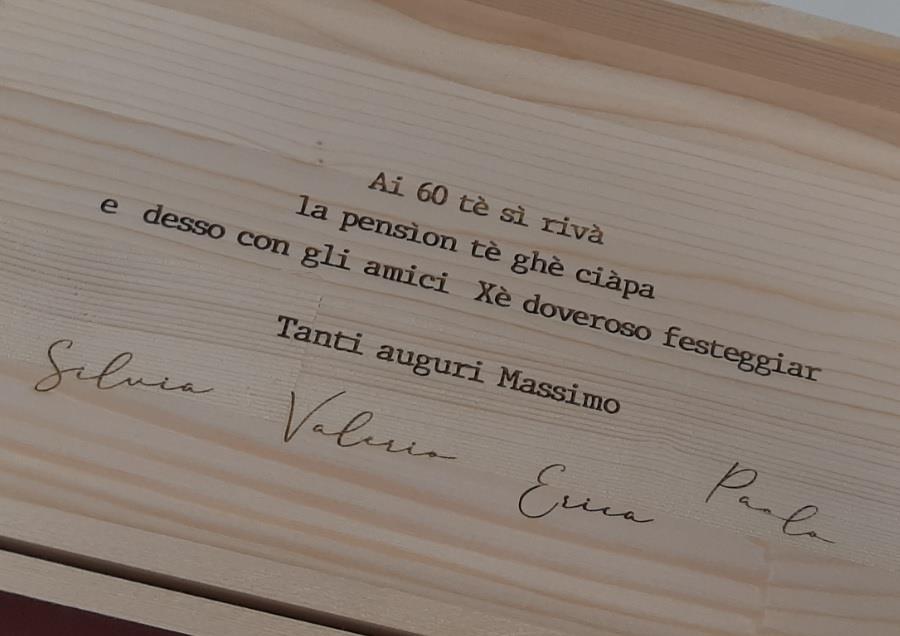 Ai 60 tè sì rivà
la pensìon tè ghè ciàpa
e desso con gli amici Xè doveroso festeggiar
Tanti auguri Massimo
Silvia
Valerio
Erica
Paolo